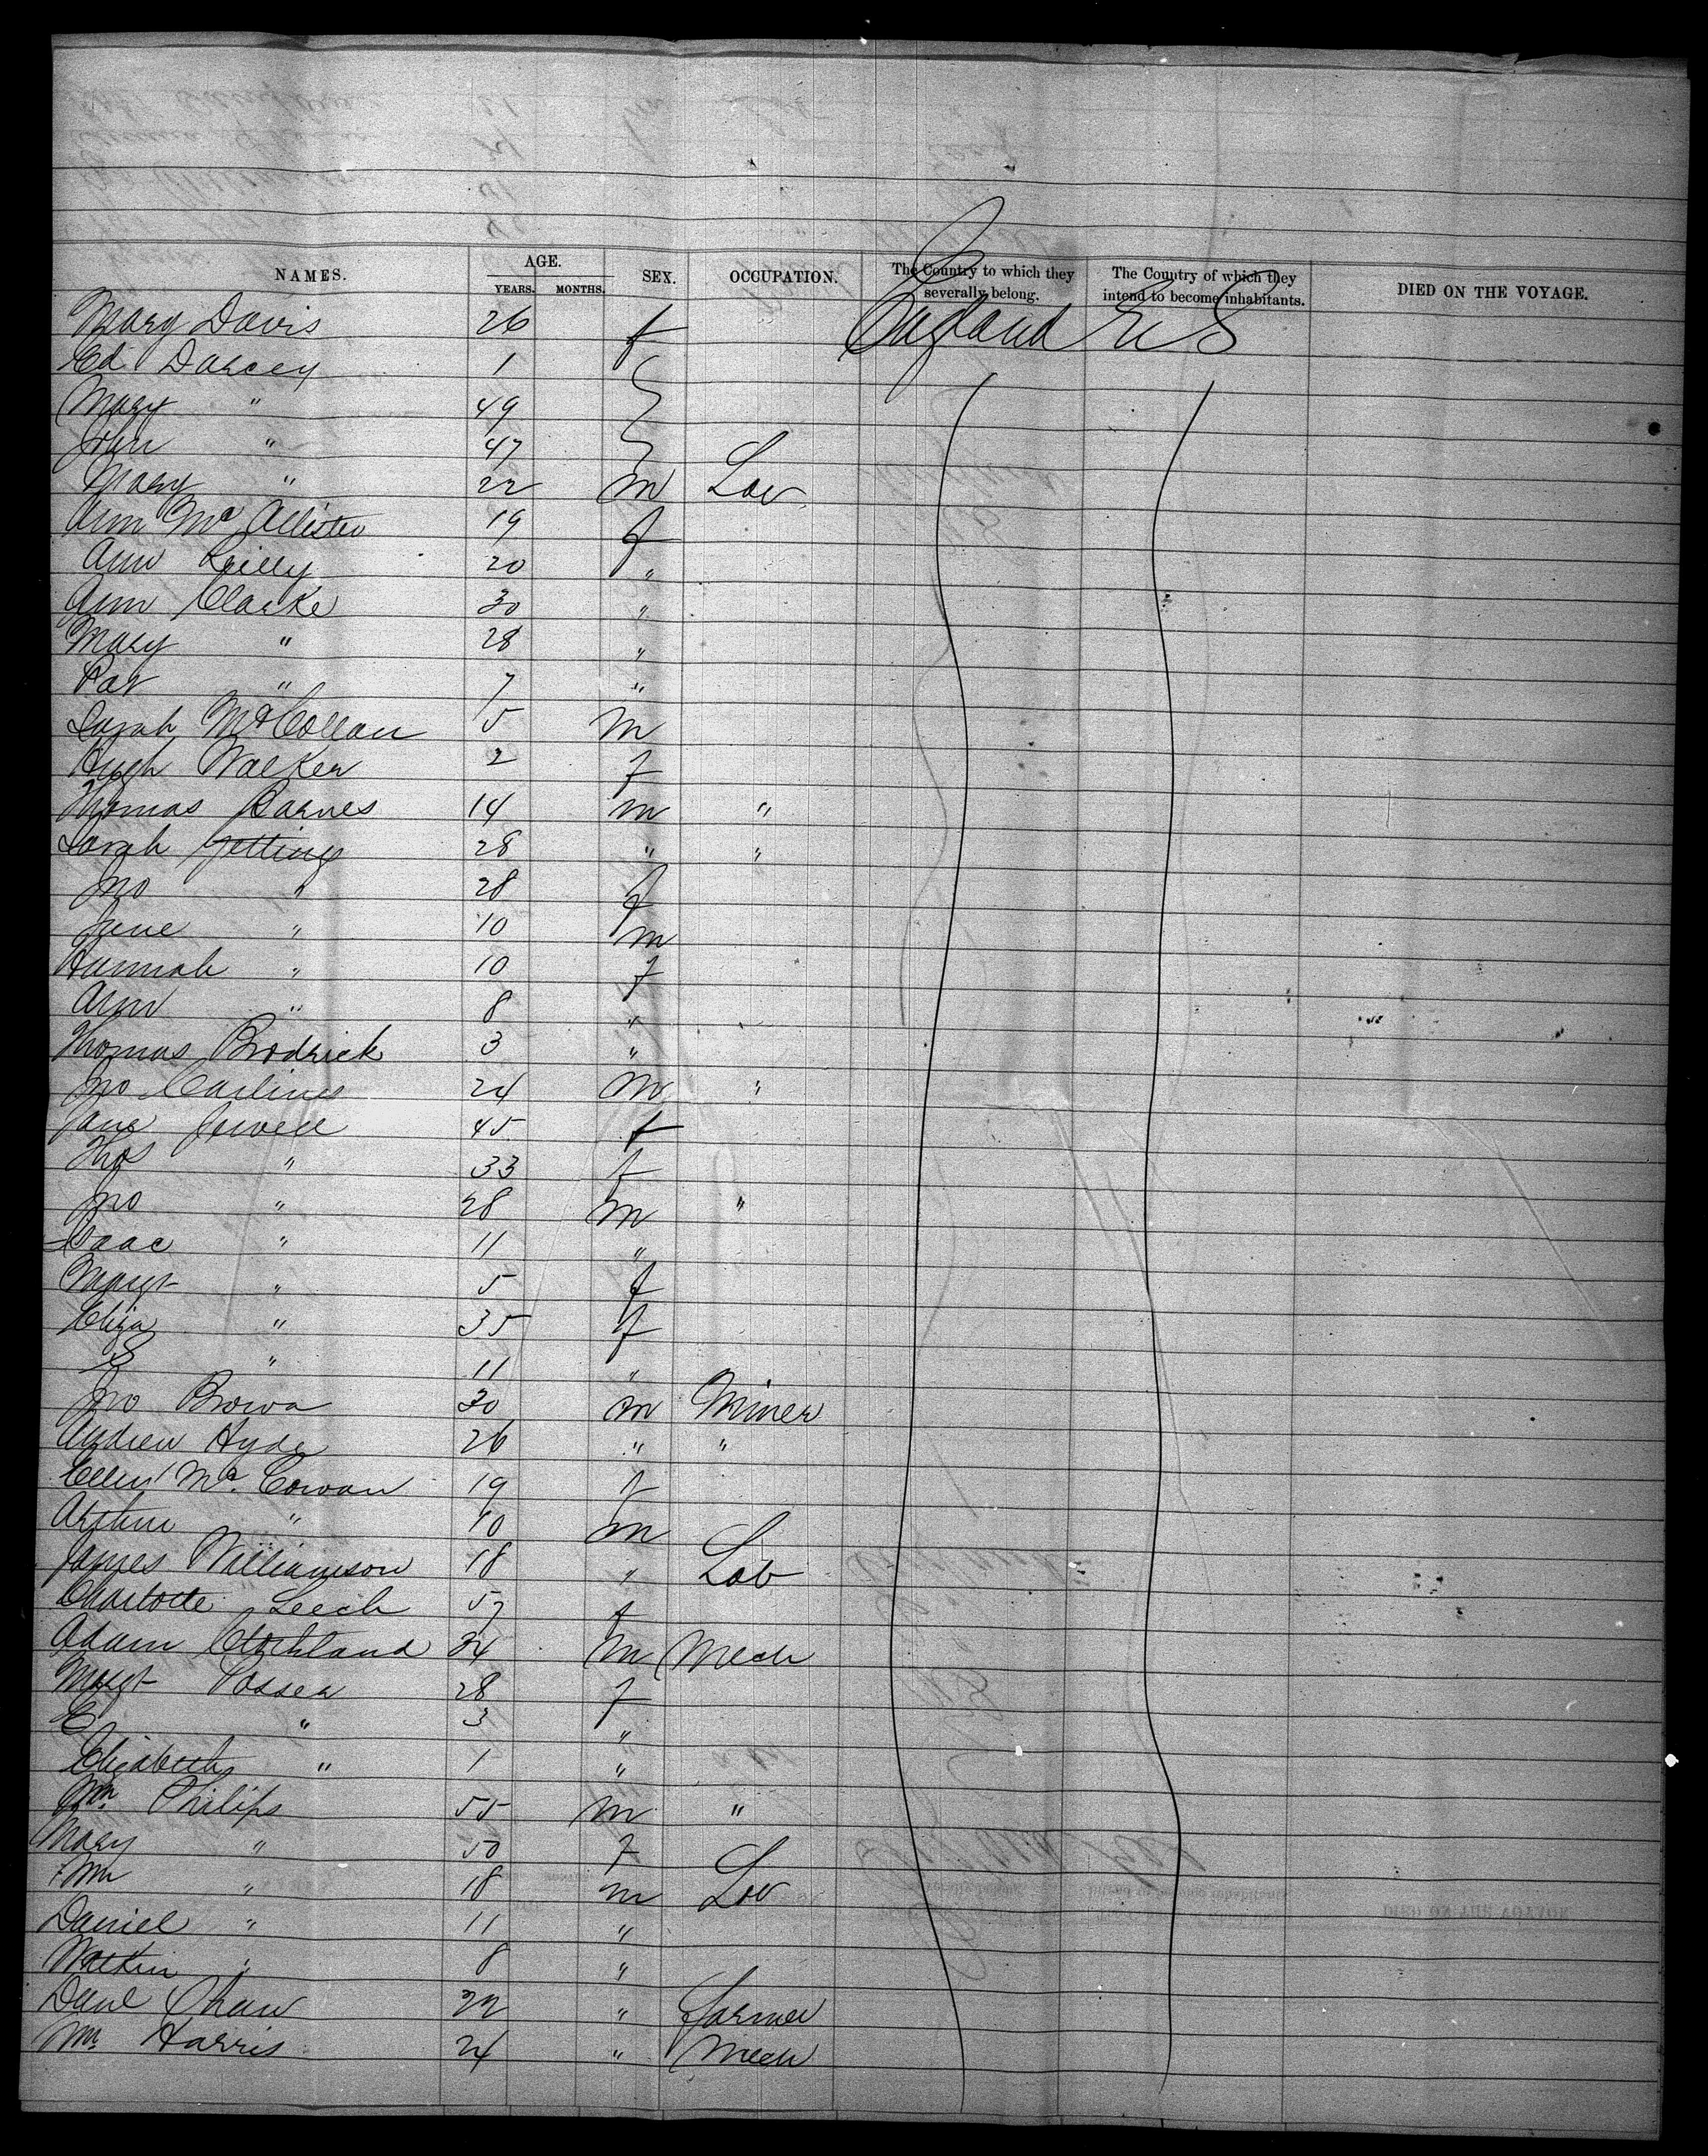 NAMES. AGE. SEX. OCCUPATION. The Country to which they severally belong. The Country of which they intend to become inhabitants. DIED ON THE VOYAGE.
YEARS. MONTHS.
Mary Davis 26 f England U S
Ed Darcey 1
Mary " 49
John " 47
Mary " 22 m Lab
Ann Mc Allister 19 f
Ann Reilly 20 "
Ann Clarke 30 "
Mary " 28 "
Pat " 7 "
Sarah McCollan 5 m
Hugh Walker 2 f
Thomas Barnes 14 m "
Sarah Gittings 28 " "
Jno " 28 f
Jane " 10 m
Hannah " 10 f
Ann " 8 "
Thomas Brodrick 3 "
Jno Carlines 24 m "
Jane Jewell 45 f
Thos " 33 f
Jno " 28 m "
Isaac " 11 "
Margt " 5 f
Eliza " 35 f
S " 11 "
Jno Brown 30 m Miner
Andrew Hyde 26 " "
Ellen Mc. Cowan 19 f
Arthur " 10 m
James Williamson 18 " Lab
Charlotte Leech 57 f
Adam 34 m Mech
Margt 28 f
E " 3 "
Elizabeth " 1 "
Wm Philips 55 m "
Mary " 50 f
Wm " 18 m Lab
Daniel " 11 "
Watkin " 8 "
Danl Shaw 22 " farmer
Wm Harris 24 " Mech